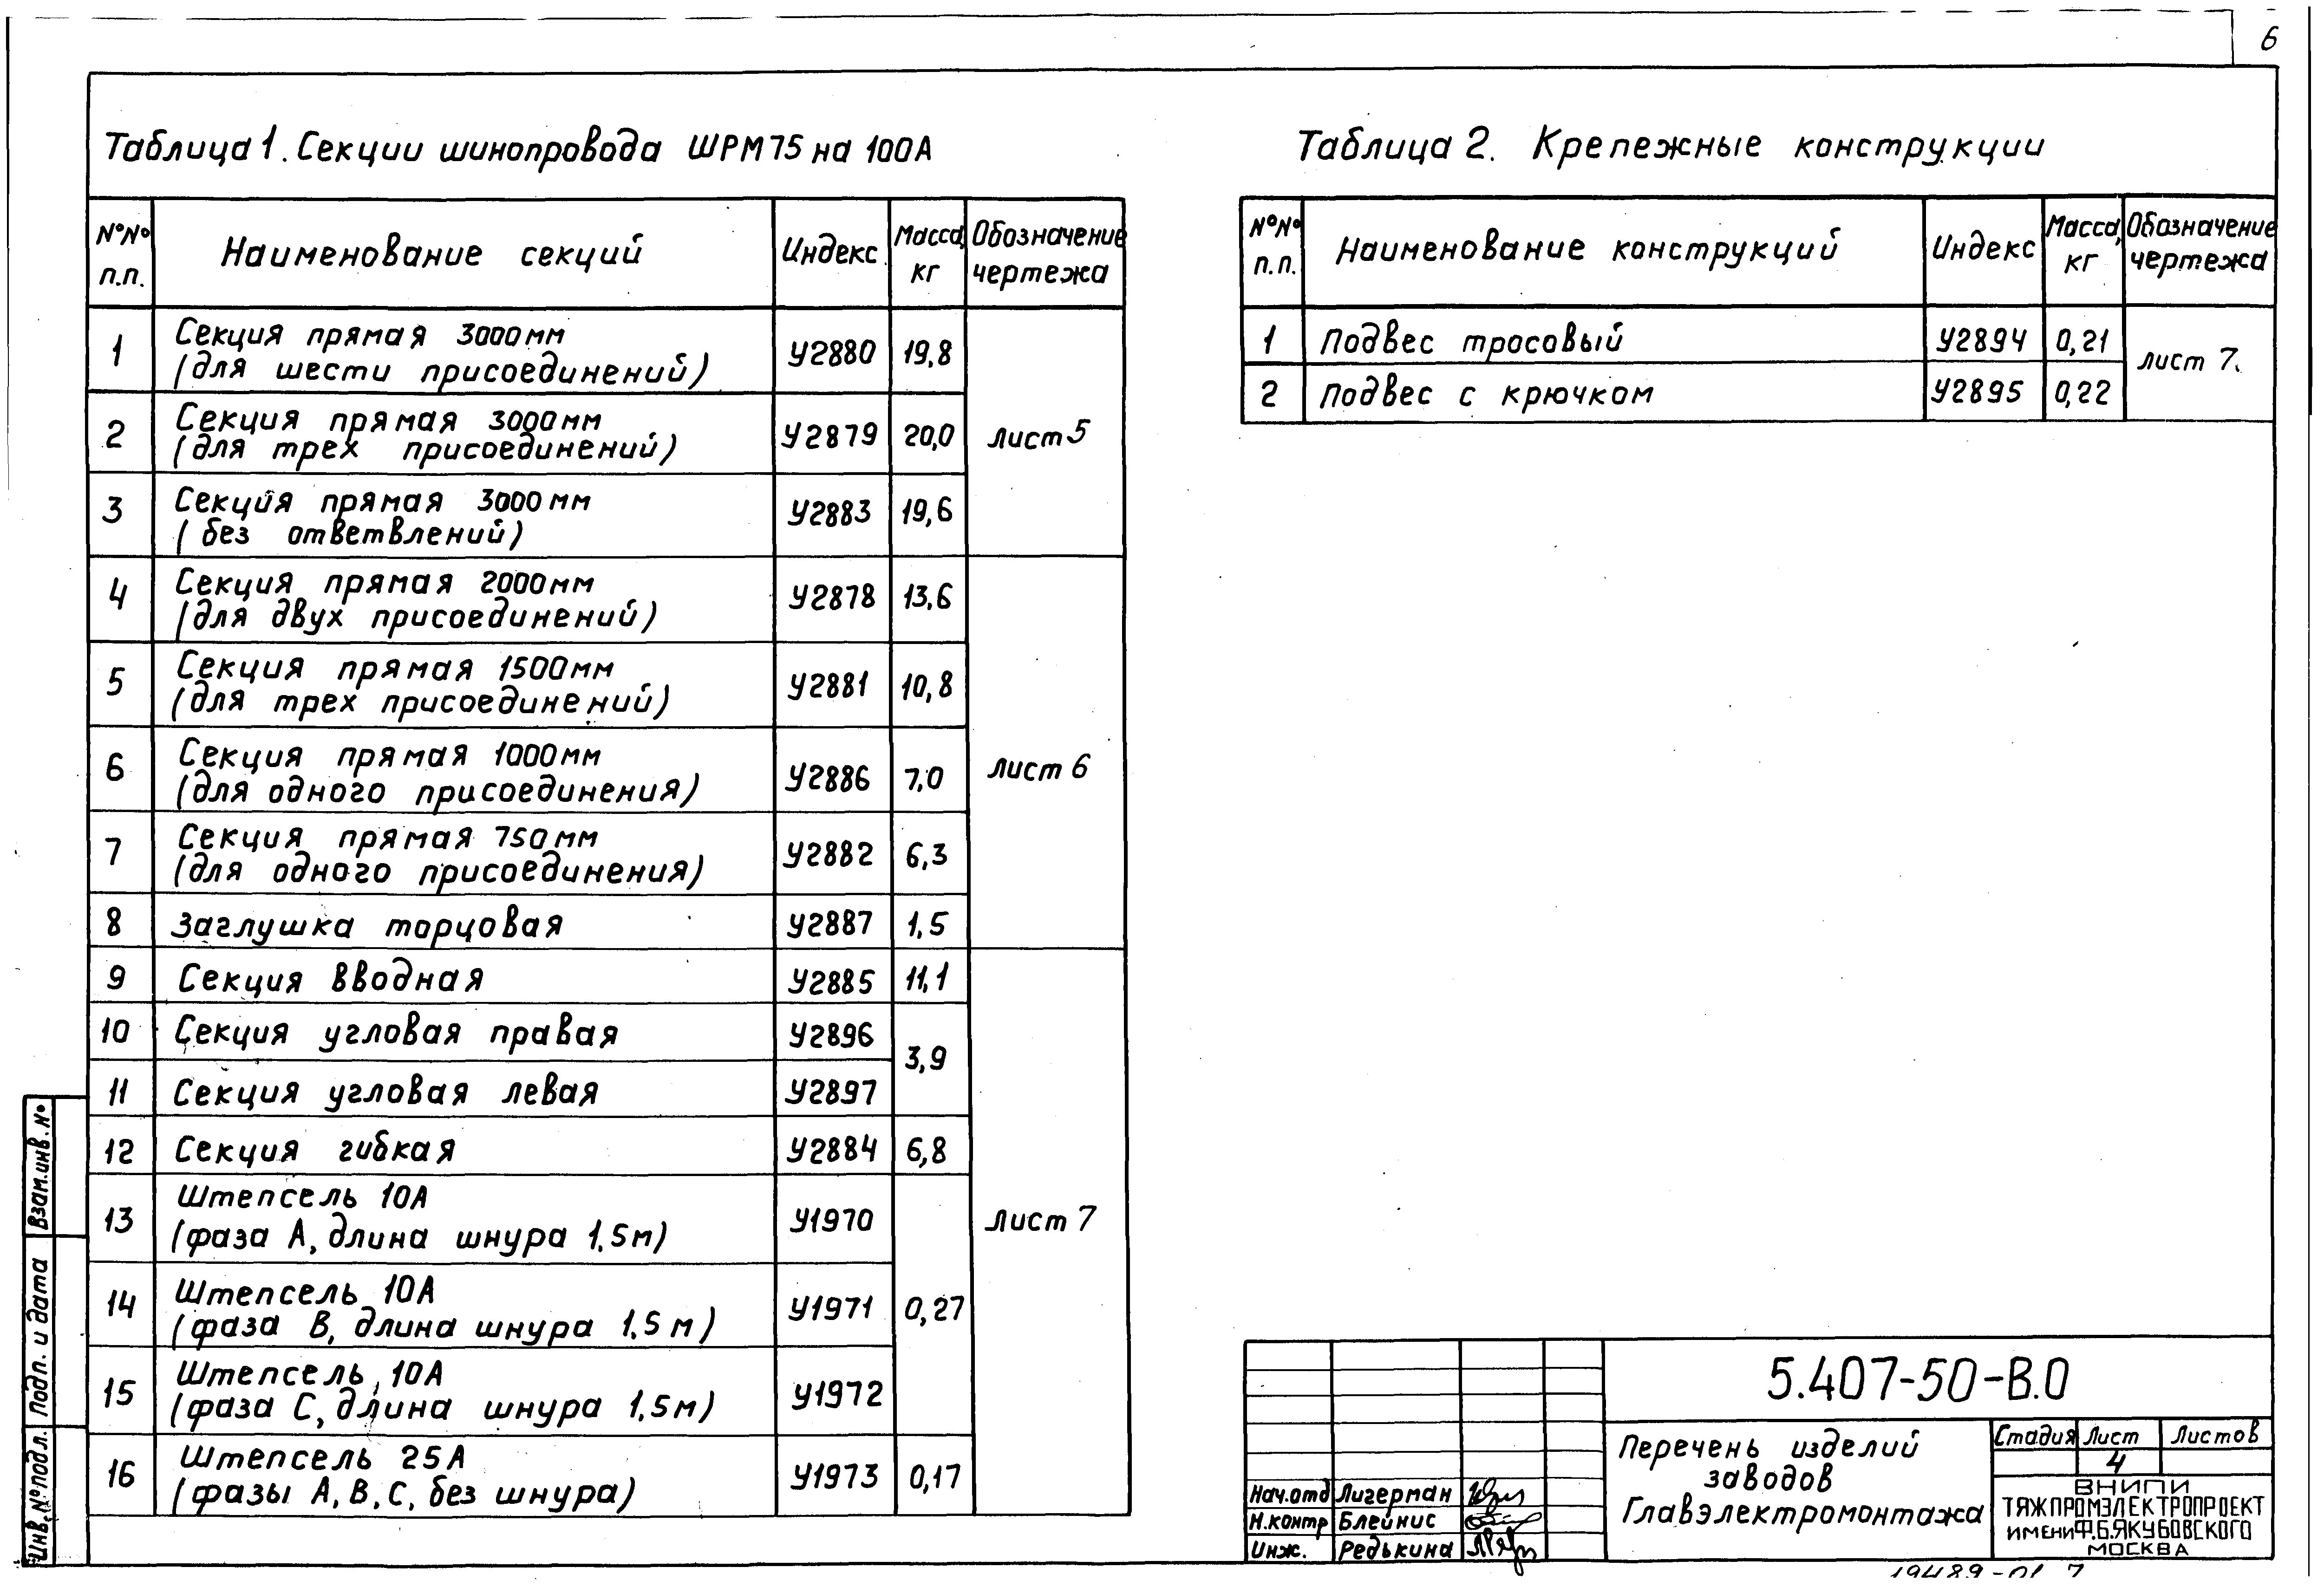 6
Таблица 1. Секции шинопровода ШРМ75 на 100А
№№ п.п. Наименование секций Индекс Масса, кг Обозначение чертежа
1 Секция прямая 3000мм У2880 19,8 лист 5
(для шести присоединений)
2 Секция прямая 3000мм У2879 20,0
(для трех присоединений)
3 Секция прямая 3000мм У2883 19,6
(без ответвлений)
4 Секция прямая 2000мм У2878 13,6 лист 6
(для двух присоединений)
5 Секция прямая 1500мм У2881 10,8
(для трех присоединений)
6 Секция прямая 1000мм У2886 7,0
(для одного присоединения)
7 Секция прямая 750мм У2882 6,3
(для одного присоединения)
8 Заглушка торцовая У2887 1,5
9 Секция вводная У2885 11,1 лист 7
10 Секция угловая правая У2896 3,9
11 Секция угловая левая У2897
12 Секция гибкая У2884 6,8
13 Штепсель 10А У1970 0,27
(фаза А, длина шнура 1,5м)
14 Штепсель 10А У1971
(фаза В, длина шнура 1,5м)
15 Штепсель 10А У1972
(фаза С, длина шнура 1,5м)
16 Штепсель 25А У1973 0,17
(фазы А, В, С, без шнура)
Таблица 2. Крепежные конструкции
№№ п.п. Наименование конструкций Индекс Масса, кг Обозначение чертежа
1 Подвес тросовый У2894 0,21 лист 7.
2 Подвес с крючком У2895 0,22
Взам.инв.№
Подп. и дата
Инв.№подл.
5.407-50-В.0
Нач.отд Лигерман
Н.контр Блейнис
Инж. Редькина
Перечень изделий
заводов
Главэлектромонтажа
Стадия Лист Листов
4
ВНИПИ
ТЯЖПРОМЭЛЕКТРОПРОЕКТ
ИМЕНИ Ф.Б.ЯКУБОВСКОГО
МОСКВА
19489-01 7